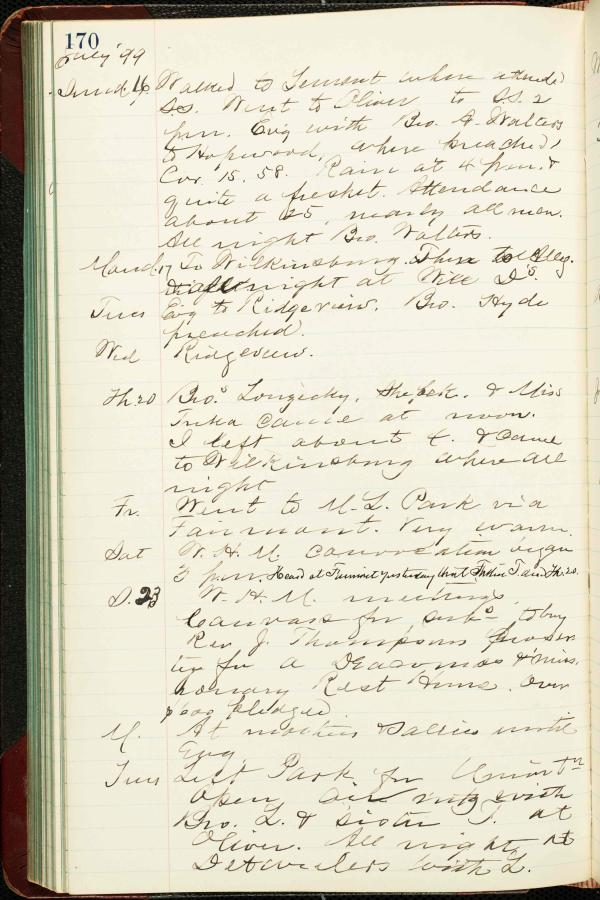 170
July '99
Sund 16 Walked to Tremont where attend
S.S. Went to Oliver to S.S. 2
p.m. Ev'g with Bro. A. Walters
to Hopwood, where preached,
Cor. 15. 58. Rain at 4 p.m. &
quite a freshet. Attendance
about 25, nearly all men.
All night Bro. Walters.
Mond. 17 To Wilkinsburg. Then to Alleg.
night at Will D's.
Tues Ev'g to Ridgeview. Bro. Hyde
preached.
Wed Ridgeview.
Th. 20 Bro.s & Miss
came at noon.
I left about & came
to Wilkinsburg where all
night
Fr. Went to M.L. Park via
Fairmont. Very warm.
Sat W. H. M. convocation began
3 p.m. Heard at yesterday that T died Th. 20.
S. 23 W. H. M. meetings
Canvass for subs to buy
Rev J. Thompsons proper
ty for a Deaconess & Miss
ionary Rest Home. Over
pledged
M. At mothers & Sallies until
Evg.
Tues Left Park for Uniontn
Open air mtg with
Bro. L. & Sister J. at
Oliver. All night at
Detwilers with L.